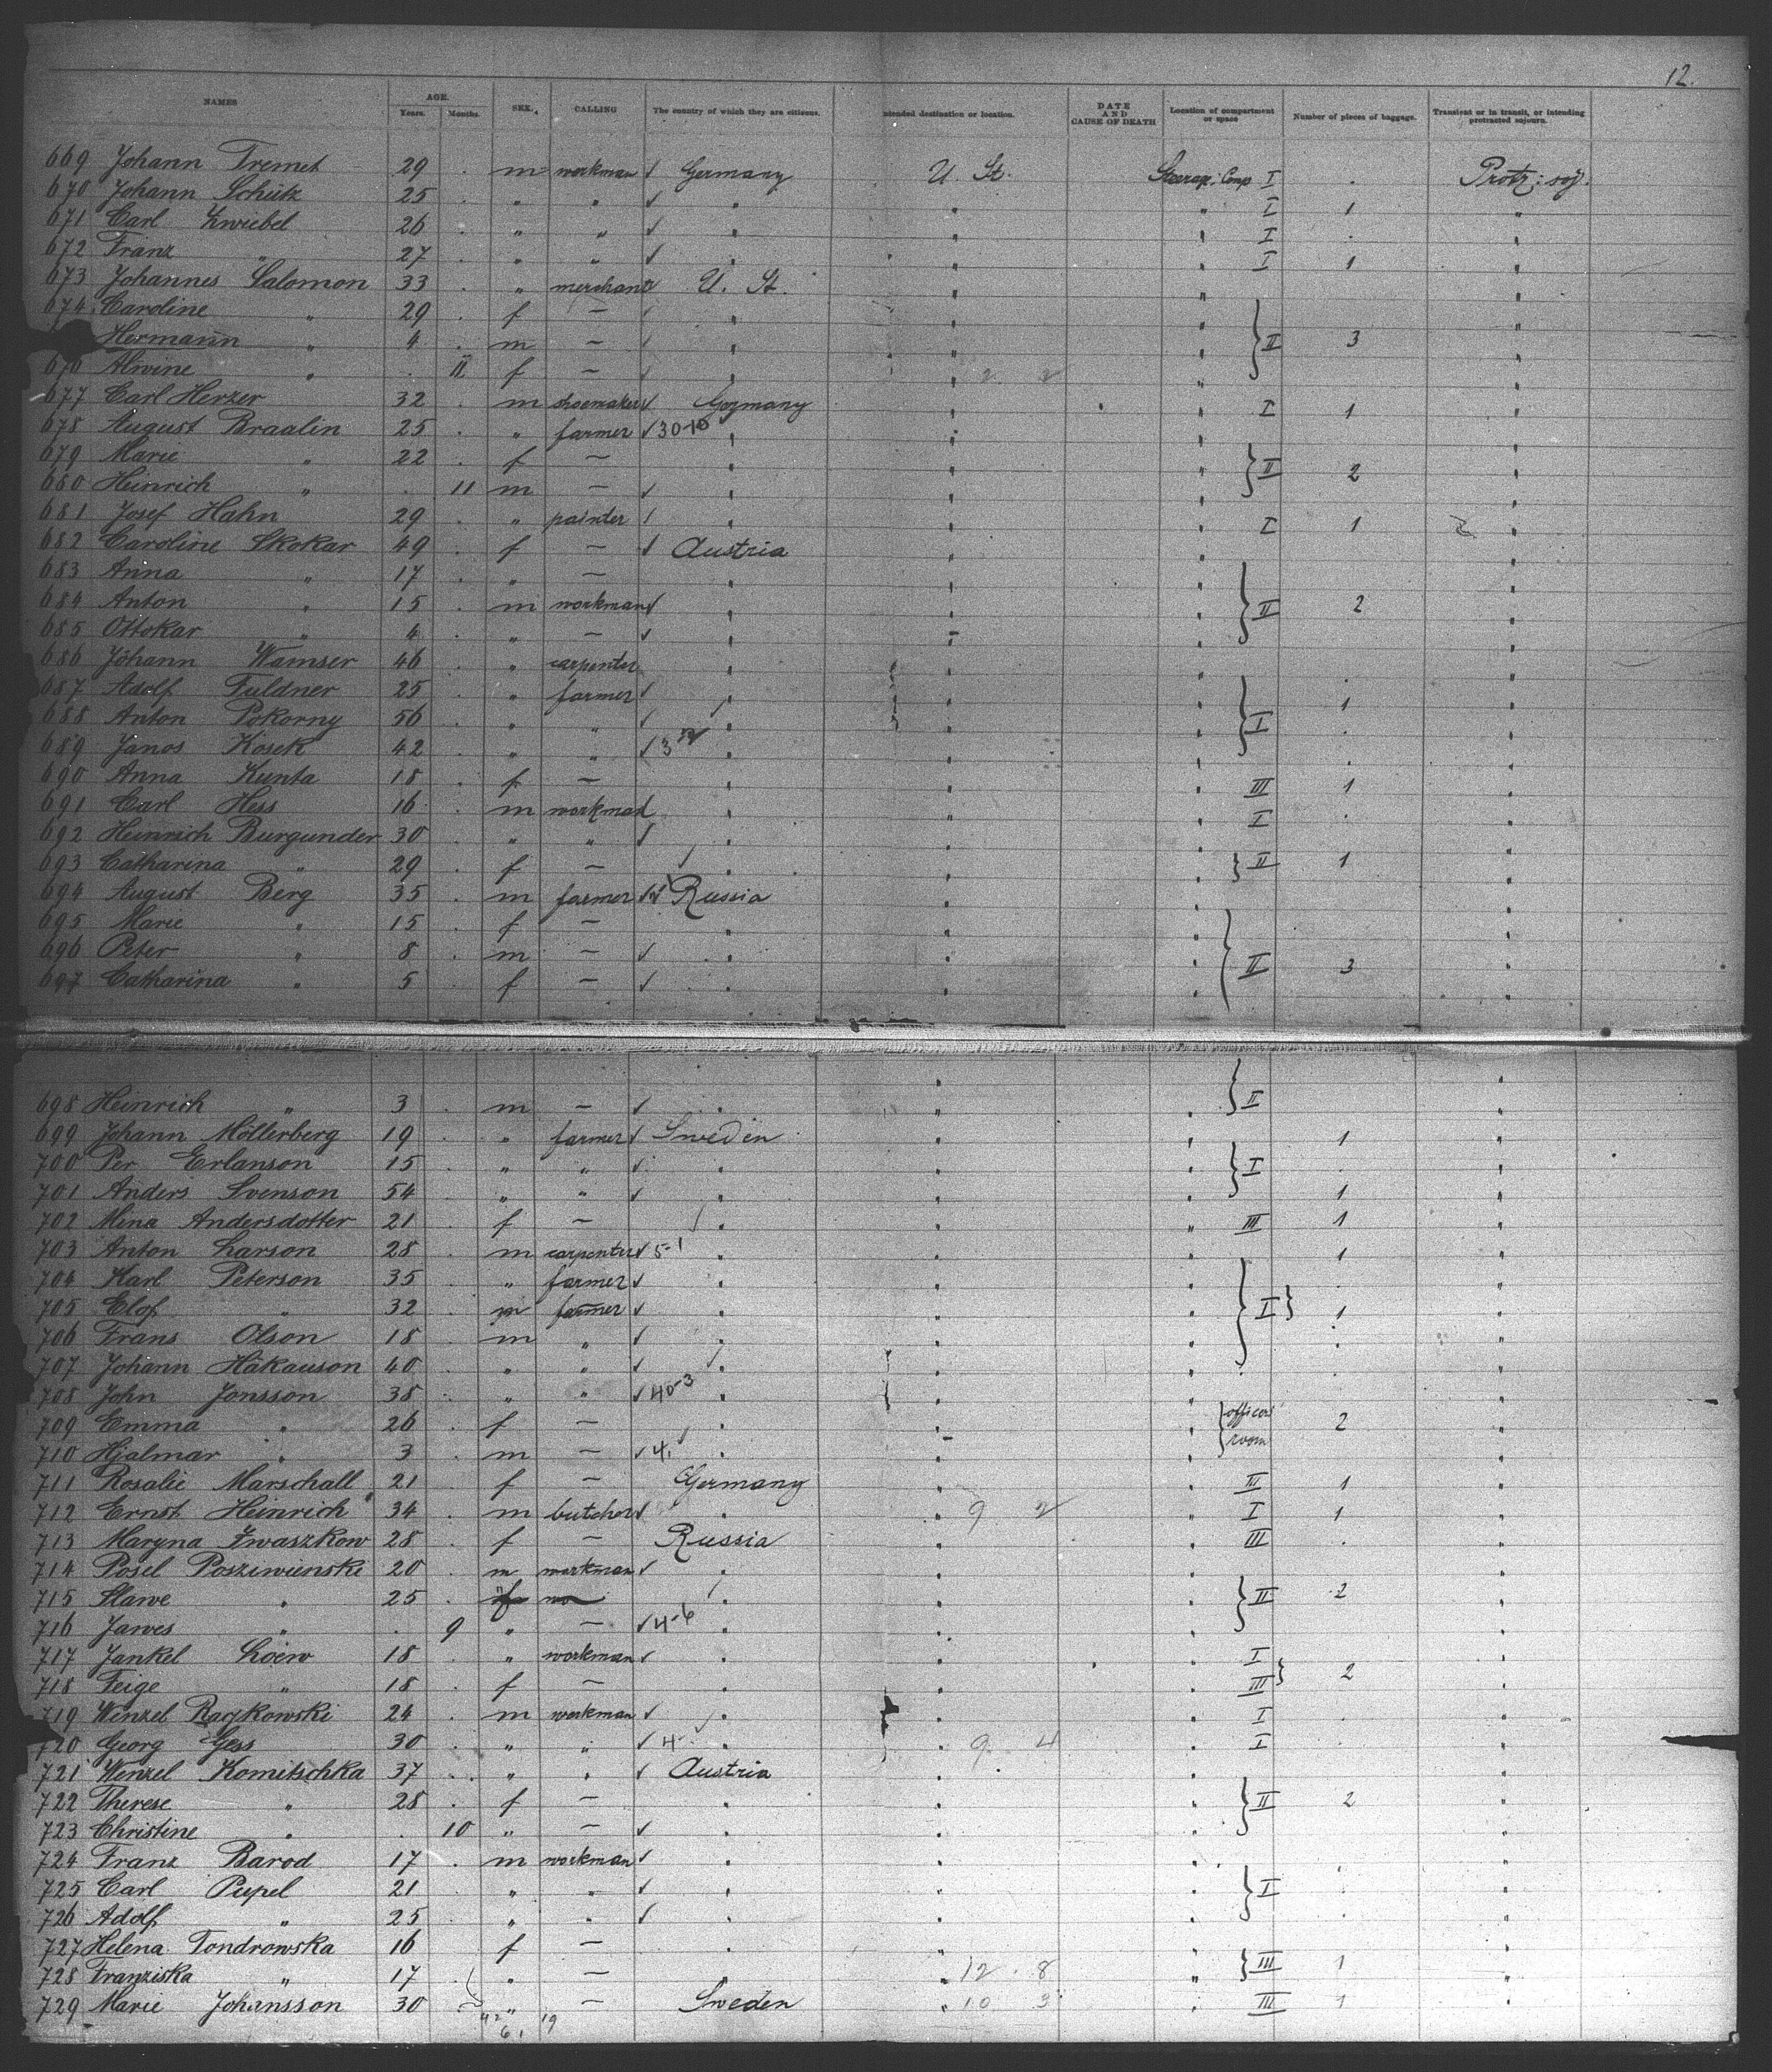 12.
NAMES AGE. Years. Months. SEX. CALLING The country of which they are citizens. Intended destination or location. DATE AND CAUSE OF DEATH Location of compartment or space Number of pieces of baggage. Transient or in transit, or intending protracted sojourn.
669 Johann Tremet 29 . m workman ✓ Germany U. St. Steerag: Comp I . Protr: soj.
670 Johann Schütz 25 . " " ✓ " " " I 1 "
671 Carl Zwiebel 26 . " " ✓ " " " I . "
672 Franz " 27 . " " ✓ " " " I 1 "
673 Johannes Salomon 33 . " merchant ✓ U. St. " " "
674 Caroline " 29 . f — ✓ " " " "
Hermann " 4 . m — ✓ " " " } II 3 "
676 Alwine " . 11 f — ✓ " " 2 2 " "
677 Carl Herzer 32 . m shoemaker ✓ Germany " " I 1 "
678 August Braalin 25 . " farmer ✓ 30-10 " " " "
679 Marie " 22 . f — " " " } II 2 "
680 Heinrich " . 11 m — ✓ " " " "
681 Josef Hahn 29 . " painter ✓ " " " I 1 "
682 Caroline Skokar 49 . f — ✓ Austria " " "
683 Anna " 17 . " — " " " "
684 Anton " 15 . m workman ✓ " " " } II 2 "
685 Ottokar " 4 . " — ✓ " " " "
686 Johann Wamser 46 . " carpenter " " " "
687 Adolf Fuldner 25 . " farmer ✓ " " " 1 "
688 Anton Pokorny 56 . " " ✓ " " " } I . "
689 Janos Kosek 42 . " " ✓ 3 " " " "
690 Anna Kunta 18 . f — " " " III 1 "
691 Carl Hess 16 . m workman ✓ " " " I . "
692 Heinrich Burgunder 30 . " " ✓ " " " "
693 Catharina " 29 . f — " " " } II 1 "
694 August Berg 35 . m farmer ✓ Russia " " "
695 Marie " 15 . f — " " " "
696 Peter " 8 . m — ✓ " " " "
697 Catharina " 5 . f — ✓ " " " } II 3 "
698 Heinrich " 3 . m — ✓ " " " } II "
699 Johann Möllerberg 19 . " farmer ✓ Sweden " " 1 "
700 Per Erlanson 15 . " " ✓ " " " } I . "
701 Anders Svenson 54 . " " ✓ " " " 1 "
702 Mina Andersdotter 21 . f — " " " III 1 "
703 Anton Larson 28 . m carpenter ✓ 5-1 " " " 1 "
704 Karl Peterson 35 . " farmer ✓ " " " . "
705 Elof " 32 . m farmer ✓ " " " } I } 1 "
706 Frans Olson 18 . m " ✓ " " " . "
707 Johann Håkauson 40 . " " ✓ " " " . "
708 John Jonsson 38 . " " ✓ 40-3 " " " "
709 Emma " 26 . f — " " " } officers 2 "
710 Hjalmar " 3 . m — ✓ 4. " " " room "
711 Rosalie Marschall 21 . f — Germany " " III 1 "
712 Ernst Heinrich 34 . m butcher ✓ " " 9 2 " I 1 "
713 Maryna Iwaszkow 28 . f — Russia " " III . "
714 Posel Posziwienski 20 . m workman ✓ " " " "
715 Slawe " 25 . f " " " } II 2 "
716 Jawes " . 9 " — ✓ 4-6 " " " "
717 Jankel Loew 18 . " workman ✓ " " " I "
718 Feige " 18 . f — " " " III } 2 "
719 Wenzel Raczkowski 24 . m workman ✓ " " " I . "
720 Georg Gess 30 . " " ✓ 4- " " 9 4 " I . "
721 Wenzel Komitschka 37 . " " ✓ Austria " " "
722 Therese " 28 . f — " " " } II 2 "
723 Christine " . 10 " — ✓ " " " "
724 Franz Barod 17 . m workman ✓ " " " . "
725 Carl Pupel 21 . " " ✓ " " " } I . "
726 Adolf " 25 . " " ✓ " " " . "
727 Helena Tondrowska 16 f — " " " "
728 Franziska " 17 . " — " " 12 . 8 " } III 1 "
729 Marie Johansson 30 — " — Sweden " 10 3 " III 1 "
42 19
6 1